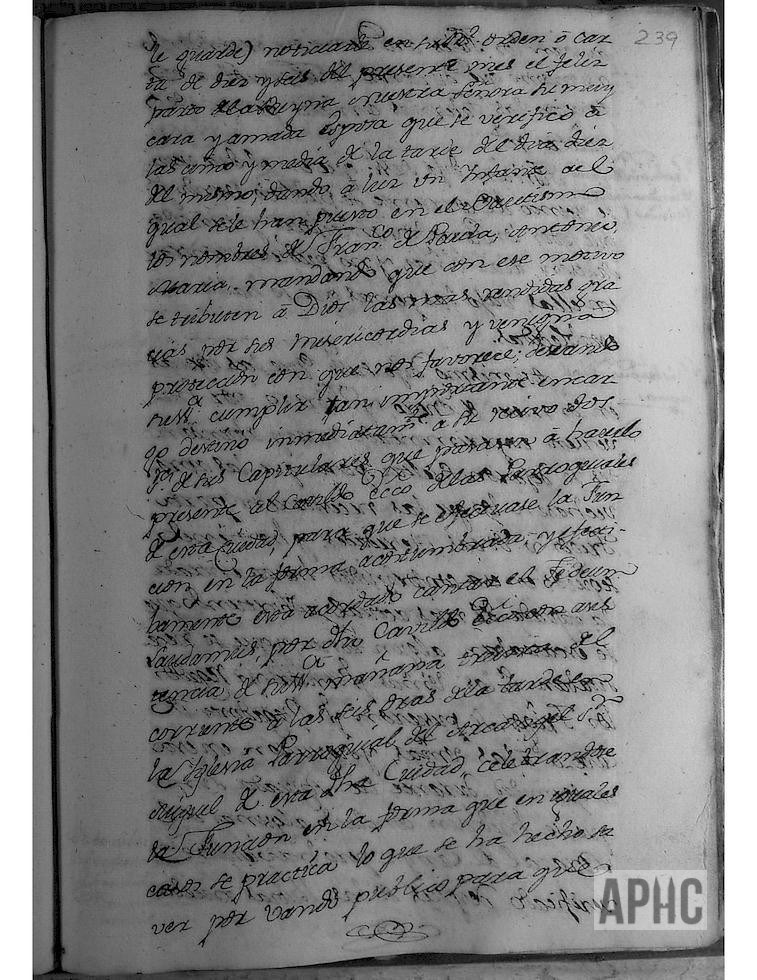 239
le guarde) noticiarle en su Rl. orden o car
ta de diez y seis del presente mes el feliz
parto de la Reyna nuestra Señora su muy
cara y amada esposa que se verificó á
las cinco y media de la tarde del dia diez
del mismo, dando á luz un Infante al
qual se le han puesto en el Bautismo
los nombres de Franco. de Paula, Antonio,
Maria, mandando que con ese motivo
se tributen á Dios las mas rendidas gra
cias por sus misericordias y venigna
proteccion con que nos favorece; deseando
cumplir tan importante encar
go destinó inmediatamte. á su recivo dos
de sus Capitulares que pasaron á hacerlo
presente al Cavildo Ecco. de las Parroquiales
de esta Ciudad, para que se efectuase la Fun
cion en la forma acostumbrada, y efecti-
bamente está acordado cantar el Tedeum
laudamus, por dho Cavildo con asis
tencia de mañana treinta del
corriente á las seis oras de la tarde en
la Iglesia Parroquial del Arcangel Sn.
Miguel de esta dha Ciudad, celebrandose
la Funcion en la forma que en iguales
casos se practica lo que se ha hecho sa
ver por vando publico para que
APHC